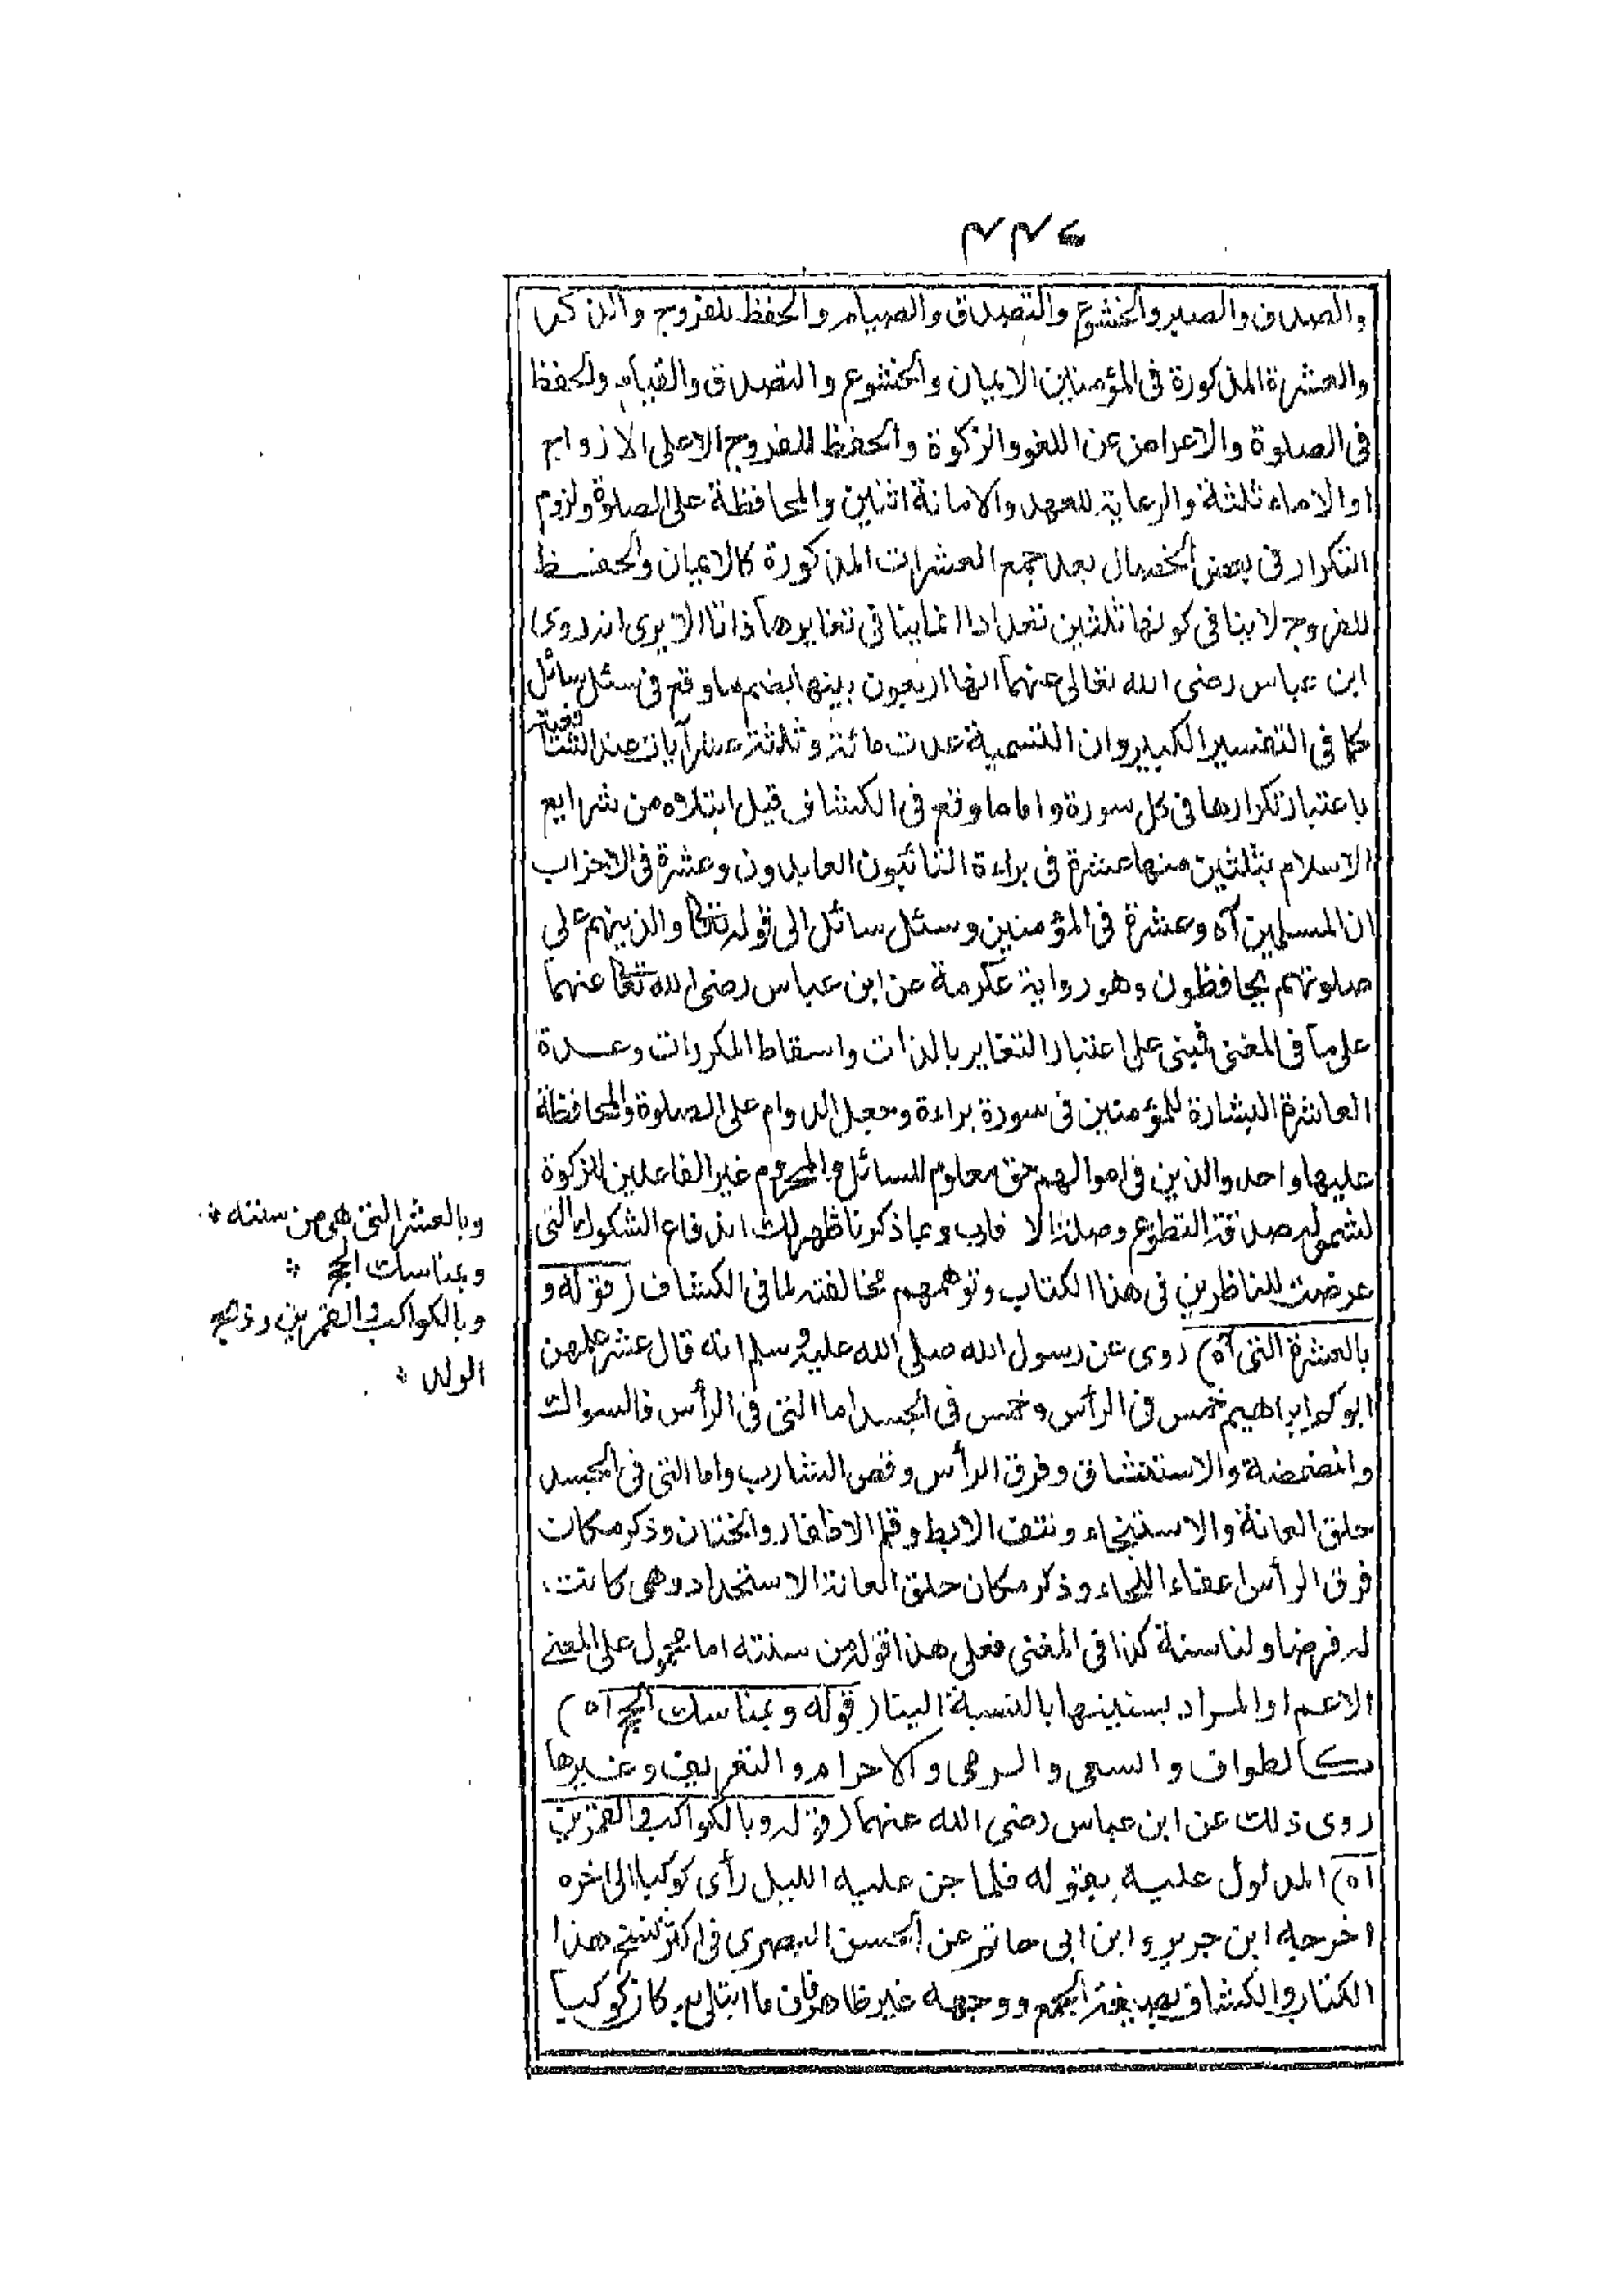 والصدق والصبر والخشوع والتصدق والصيام والحفظ للفروج والذكر
والعشرة المذكورة فى المؤمنين الايمان والخشوع والتصدق والقيام والحفظ
فى الصلوة والاعراض عن اللغو والزكوة والحفظ للفروج الا على الازواج
او الاماء ثلثة والرعاية للعهد والامانة اثنين والمحافظة على الصلوة ولزوم
التكرار فى بعض الخصال بعد جمع العشرات المذكورة كالايمان والحفظ
للفروج لا ينافى كونها ثلثين تعدادا انما ينافى تغايرها ذاتا الا يرى انه روى
ابن عباس رضى الله تعالى عنهما انها اربعون بينها بضم ما وقع فى سئل سائل
كما فى التفسير الكبير وان التسمية عدت مائة وثلاثة عشر آيات عند الشافعية
باعتبار تكرارها فى كل سورة واما ما وقع فى الكشاف قيل ابتلاه من شرايع
الاسلام بثلثين منها عشرة فى براءة التائبون العابدون وعشرة فى الاحزاب
ان المسلمين آه وعشرة فى المؤمنين وسئل سائل الى قوله تعا والذينهم على
صلوتهم يحافظون وهو رواية عكرمة عن ابن عباس رضى الله تعا عنهما
على ما فى المغنى فمبنى على اعتبار التغاير بالذات واسقاط المكررات وعدة
العاشرة البشارة للمؤمنين فى سورة براءة وجعل الدوام على الصلوة والمحافظة
عليها واحد والذين فى اموالهم حق معلوم للسائل والمحروم غير الفاعلين للزكوة
لشموله صدقة التطوع وصلة الا قارب وبما ذكرنا ظهر لك اندفاع الشكوك التى
عرضت للناظرين فى هذا الكتاب وتوهمهم مخالفته لما فى الكشاف (قوله و
بالعشرة التى آه) روى عن رسول الله صلى الله عليه وسلم انه قال عشر علمهن
ابوكم ابراهيم خمس فى الرأس وخمس فى الجسد اما التى فى الرأس فالسواك
والمضمضة والاستنشاق وفرق الرأس وقص الشارب واما التى فى الجسد
حلق العانة والاستنجاء ونتف الابط وقلم الاظفار والختان وذكر مكان
فرق الرأس اعفاء اللحاء وذكر مكان حلق العانة الاستحداد وهى كانت
له فرضا ولنا سنة كذا فى المغنى فعلى هذا قوله من سنته اما محمول على المعنے
الاعم او المراد بسنينها بالنسبة الينا (قوله وبمناسك الحج آه)
كالطواف والسعى والرمى والاحرام والتعريف وغيرها
روى ذلك عن ابن عباس رضى الله عنهما (قوله وبالكواكب والقمرين
آه) المدلول عليه بقوله فلما جن عليه الليل رأى كوكبا الى اخره
اخرجه ابن جرير وابن ابى حاتم عن الحسن البصرى فى اكثر نسخ هذا
الكتاب والكشاف بصيغة الجمع ووجهه غير ظاهر فان ما ابتلى به كان كوكبا
وبالعشر التى هى من سنته ؞
وبمناسك الحج ؞
وبالكواكب والقمرين وذبح
الولد ؞